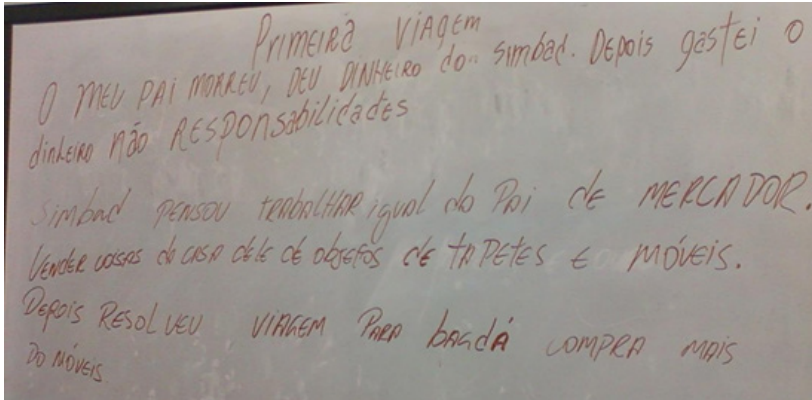 Primeira Viagem
O MEU PAI MORREU, DEU DINHEIRO do simbad. Depois gastei o
dinheiro não RESPONSabilidades
Simbad PENSOU TRABALHAR igual do Pai de MERCADOR.
VENDER coisas do CASA dele de objetos de TAPETES E MÓVEIS.
Depois RESOLVEU VIAGEM PARA bagdá COMPRA MAIS
DO MÓVEIS